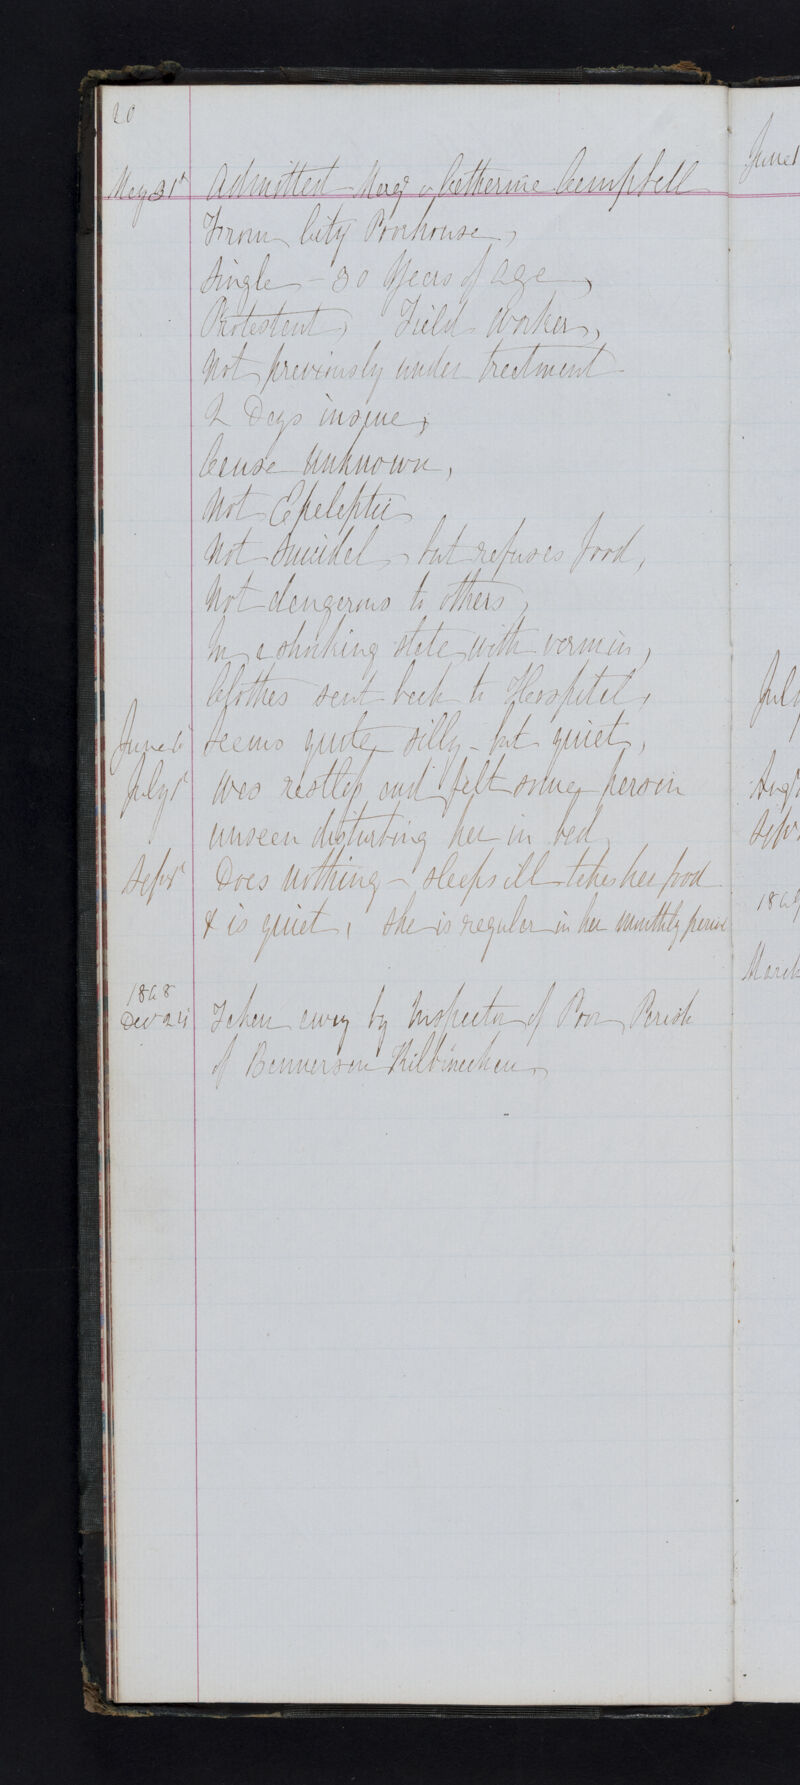 20
June 1
May 31st Admitted Mary or Catherine Campbell
From City Poorhouse,
Single - 30 Years of age,
Protestant, Field Worker,
Not previously under treatment
2 Days insane,
Cause Unknown,
Not Epeleptic
Not Suicidal, but refuses food,
Not dangerous to others,
In a shocking state with vermin,
Clothes sent back to Hospital,
June 6 Seems quite silly - but quiet,
July 1st Was restless and felt some person
unseen disturbing her in bed
Sepr 1st Does nothing - sleeps ill takes her food
& is quiet, she is regular in her monthly period
1868
Decr 24 Taken away by Inspector of Poor Parish
of Kilbarchan
July
Augt
Sepr
1869
March